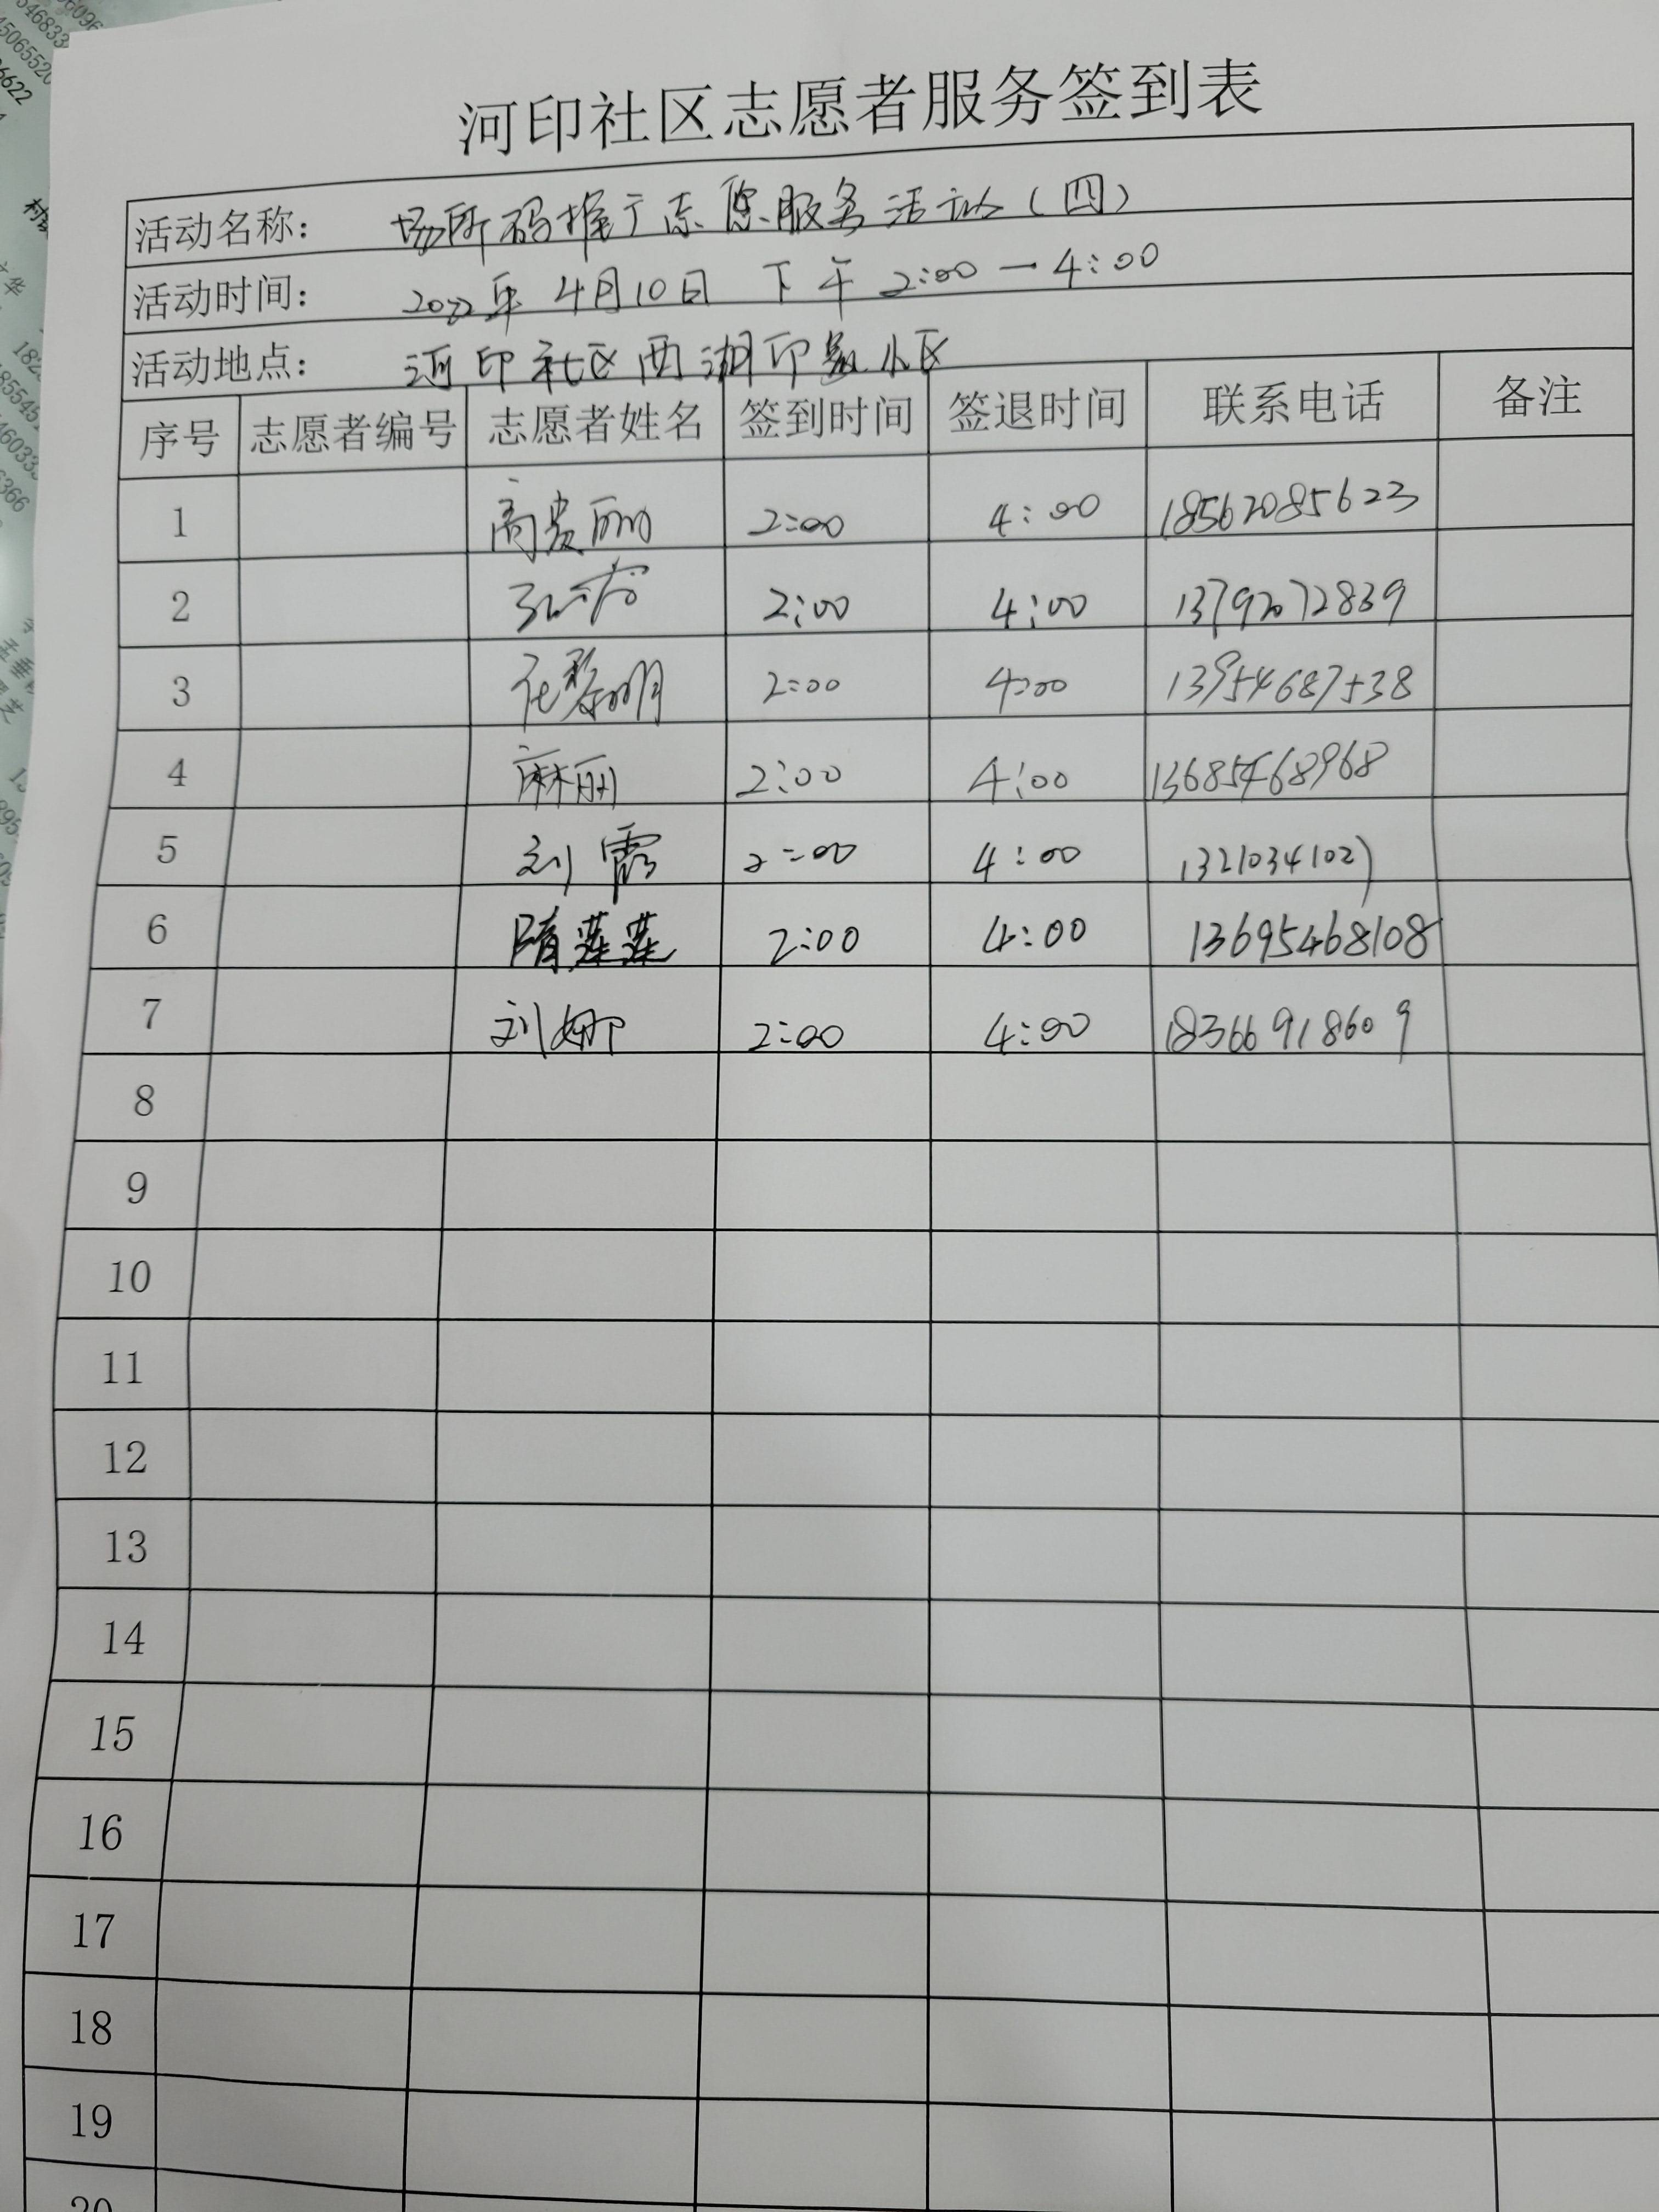 河印社区志愿者服务签到表
活动名称: 场所码推广志愿服务活动（四）
活动时间: 2022年 4月10日 下午 2:00 — 4:00
活动地点: 河印社区西湖印象小区
序号 志愿者编号 志愿者姓名 签到时间 签退时间 联系电话 备注
1 高贵丽 2:00 4:00 18562085623
2 2:00 4:00 13792072839
3 任黎明 2:00 4:00 13954687538
4 麻丽 2:00 4:00 13685468968
5 刘霞 2:00 4:00 13210341027
6 隋莲莲 2:00 4:00 13695468108
7 刘娜 2:00 4:00 18366918609
8
9
10
11
12
13
14
15
16
17
18
19
20